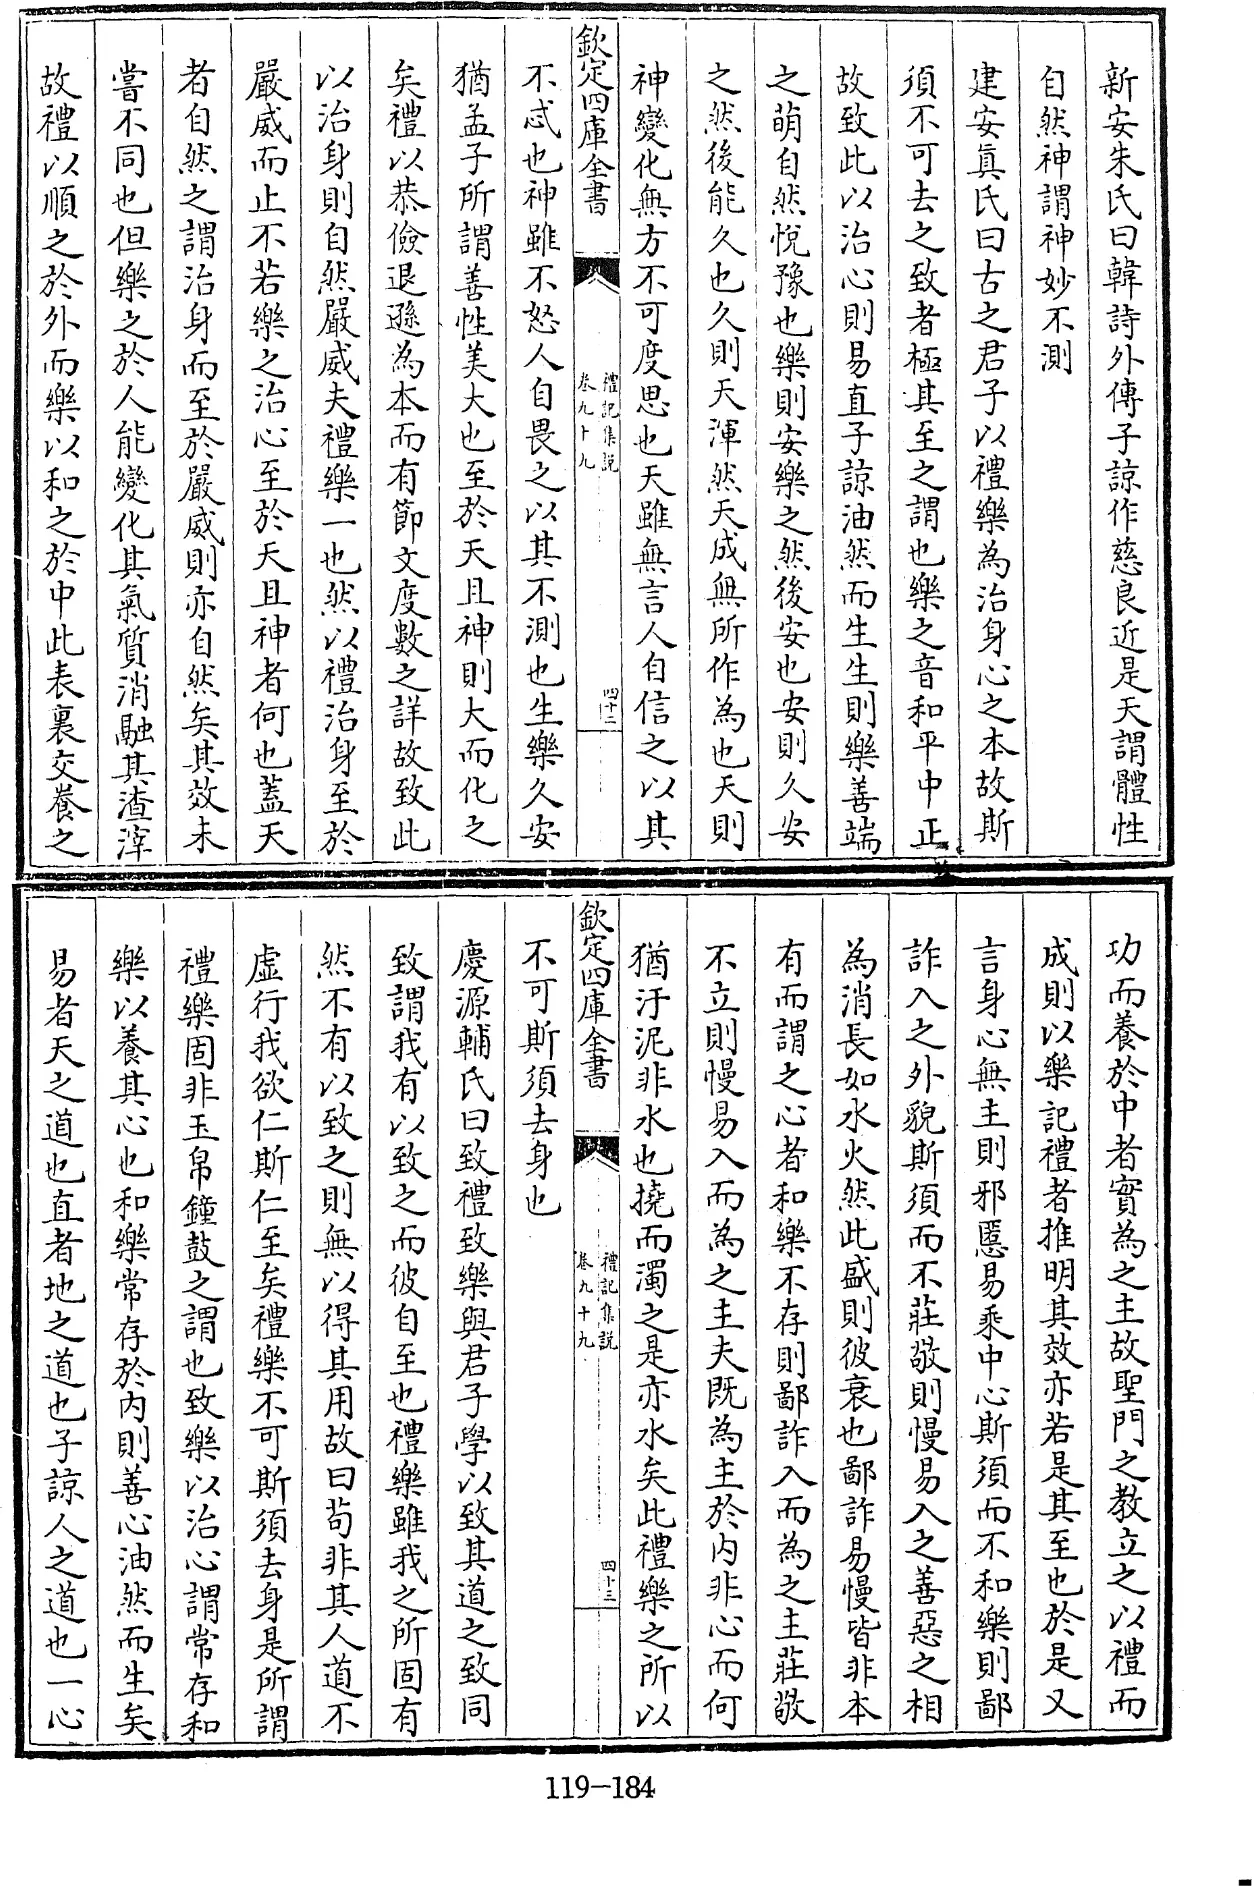 新安朱氏曰韓詩外傳子諒作慈良近是天謂體性
自然神謂神妙不測
建安真氏曰古之君子以禮樂為治身心之本故斯
須不可去之致者極其至之謂也樂之音和平中正
故致此以治心則易直子諒油然而生生則樂善端
之萌自然悅豫也樂則安樂之然後安也安則久安
之然後能久也久則天渾然天成無所作為也天則
神變化無方不可度思也天雖無言人自信之以其
欽定四庫全書
禮記集說
卷九十九
四十二
不忒也神雖不怒人自畏之以其不測也生樂久安
猶孟子所謂善性美大也至於天且神則大而化之
矣禮以恭儉退遜為本而有節文度數之詳故致此
以治身則自然嚴威夫禮樂一也然以禮治身至於
嚴威而止不若樂之治心至於天且神者何也蓋天
者自然之謂治身而至於嚴威則亦自然矣其效未
嘗不同也但樂之於人能變化其氣質消融其渣滓
故禮以順之於外而樂以和之於中此表裏交養之
功而養於中者實為之主故聖門之教立之以禮而
成則以樂記禮者推明其效亦若是其至也於是又
言身心無主則邪慝易乘中心斯須而不和樂則鄙
詐入之外貌斯須而不莊敬則慢易入之善惡之相
為消長如水火然此盛則彼衰也鄙詐易慢皆非本
有而謂之心者和樂不存則鄙詐入而為之主莊敬
不立則慢易入而為之主夫既為主於內非心而何
猶汙泥非水也撓而濁之是亦水矣此禮樂之所以
欽定四庫全書
禮記集說
卷九十九
四十三
不可斯須去身也
慶源輔氏曰致禮致樂與君子學以致其道之致同
致謂我有以致之而彼自至也禮樂雖我之所固有
然不有以致之則無以得其用故曰苟非其人道不
虛行我欲仁斯仁至矣禮樂不可斯須去身是所謂
禮樂固非玉帛鐘鼓之謂也致樂以治心謂常存和
樂以養其心也和樂常存於內則善心油然而生矣
易者天之道也直者地之道也子諒人之道也一心
119-184